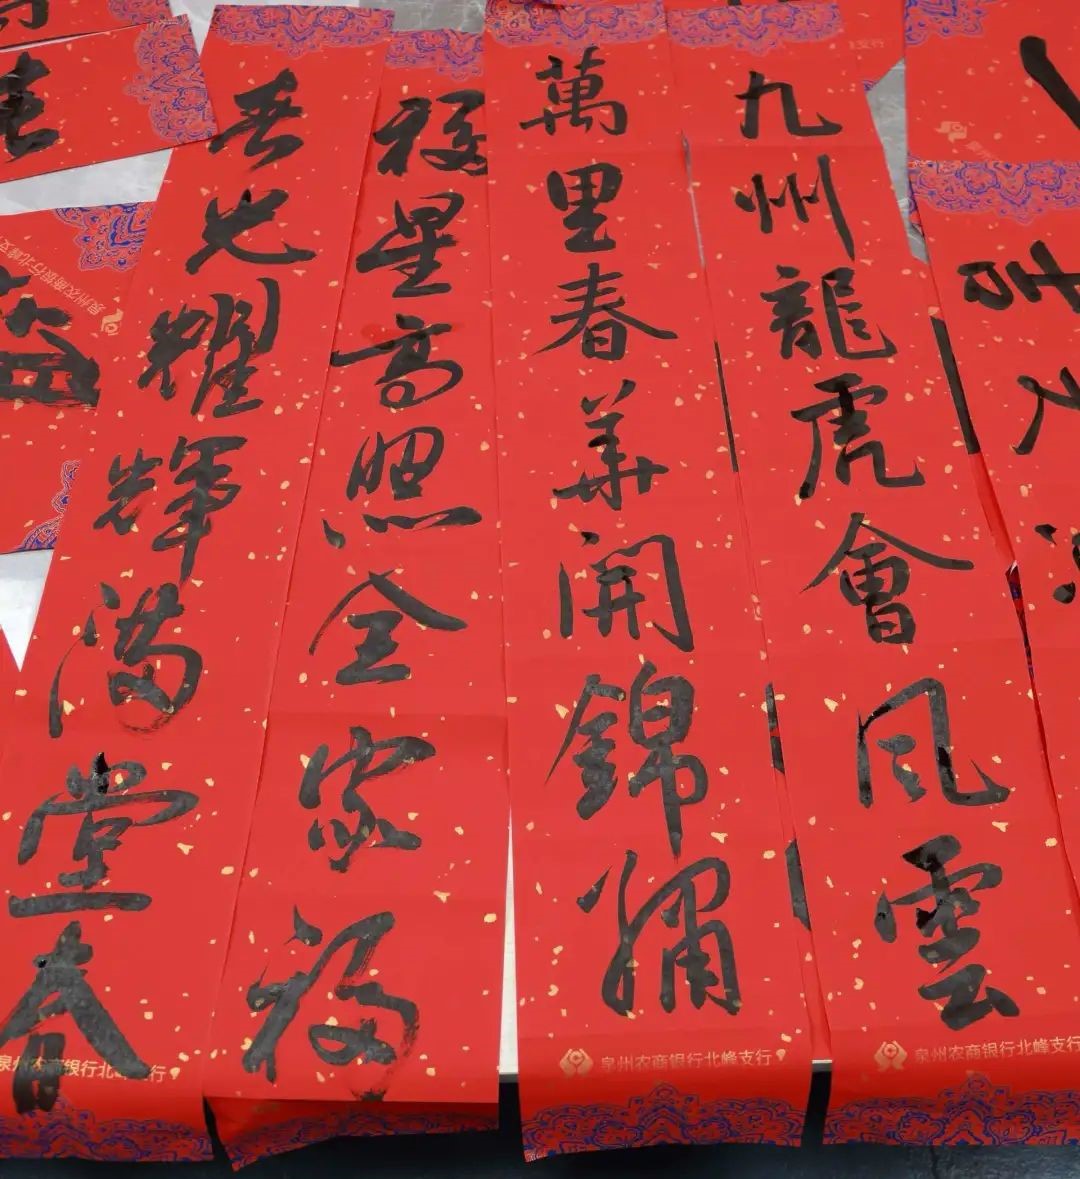 九州龍虎會风雲
泉州农商银行北峰支行
萬里春華開錦繡
泉州农商银行北峰支行
福星高照全家福
春光耀輝满堂春
泉州农商银行北峰支行
泉州农商银行北峰支行
益
支行